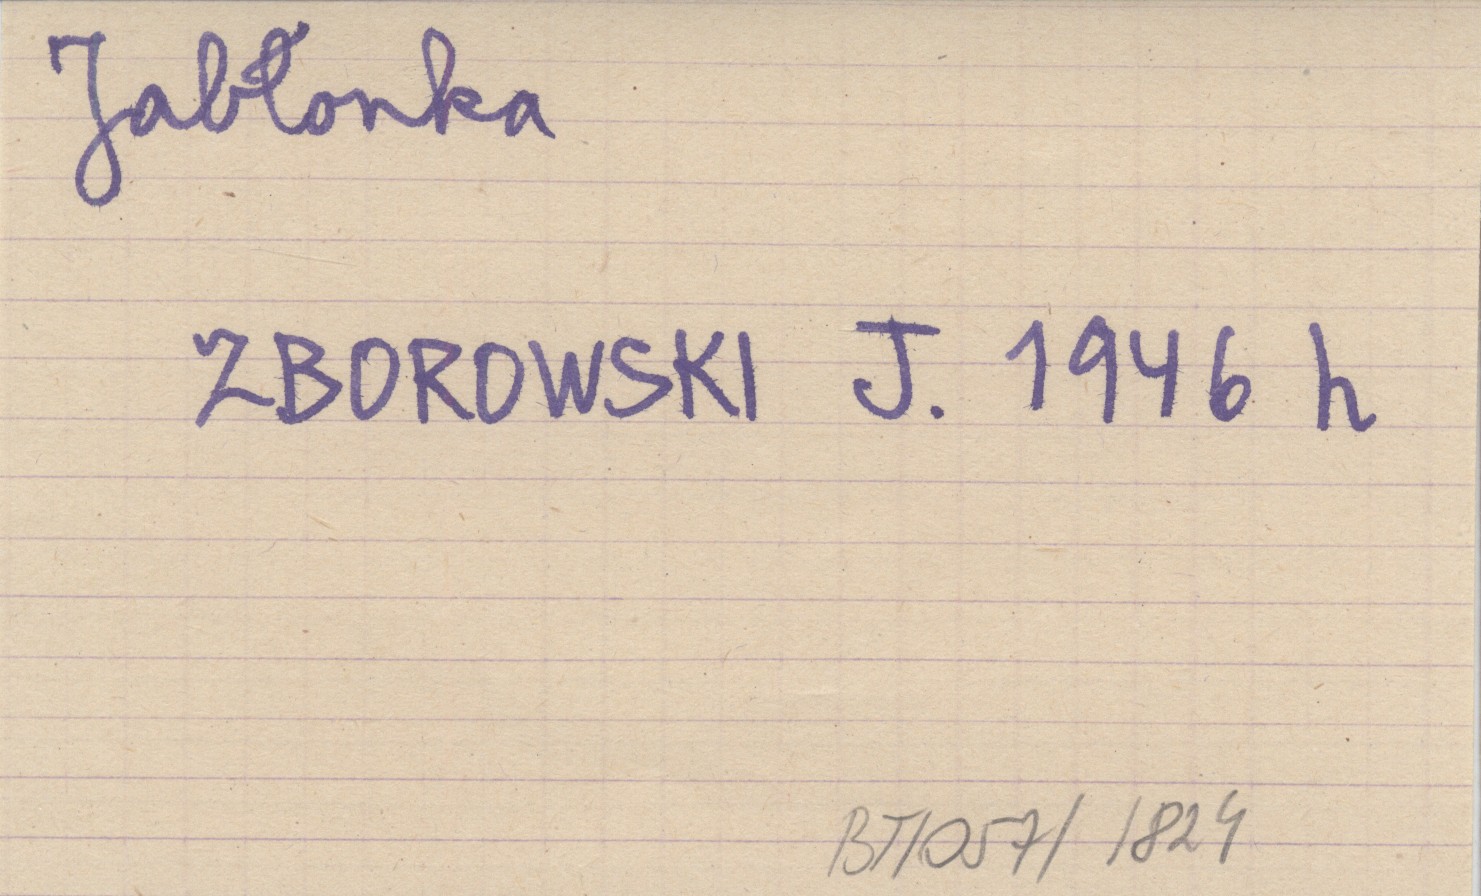 Jabłonka
ZBOROWSKI J. 1946 h
BT/057/ 1824